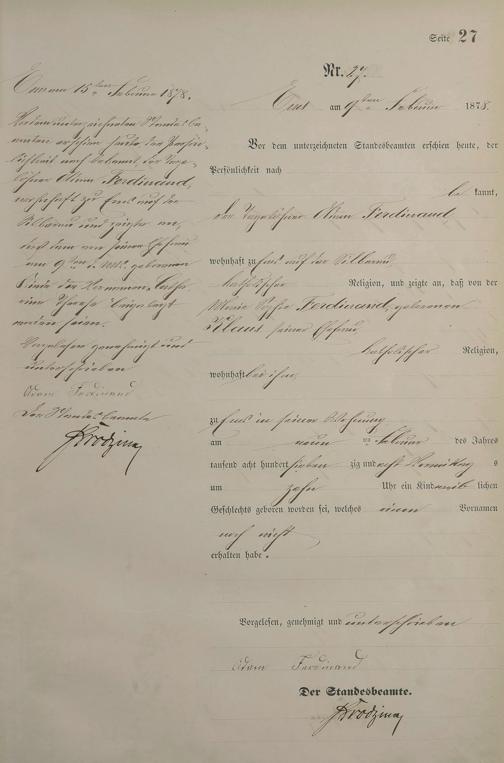 Seite 27
Nr. 27.
Ems am 9ten Februar 1878.
Vor dem unterzeichneten Standesbeamten erschien heute, der
Persönlichkeit nach
be kannt,
der Tagelöhner Adam Ferdinand
wohnhaft zu Ems auf der
katholischer Religion, und zeigte an, daß von der
Maria Ferdinand, geborenen
Klaus seiner Ehefrau
katholischer Religion,
wohnhaft bei ihm,
zu Ems in seiner Wohnung
am neun ten Februar des Jahres
tausend acht hundert sieben zig und acht Vormittag s
um zehn Uhr ein Kind weib lichen
Geschlechts geboren worden sei, welches einen Vornamen
noch nicht
erhalten habe.
Vorgelesen, genehmigt und unterschrieben
Adam Ferdinand
Der Standesbeamte.
Brodzina
Ems am 15ten Februar 1878.
Vor dem unterzeichneten Standesbe
amten erschien heute der Persön
lichkeit nach bekannt, der Tage
löhner Adam Ferdinand,
wohnhaft zu Ems auf der
und zeigte an,
daß dem von seiner Ehefrau
am 9ten geborenen
Kinde die Vornamen
Therese beigelegt
worden seien.
Vorgelesen genehmigt und
unterschrieben
Adam Ferdinand
Der Standesbeamte
Brodzina